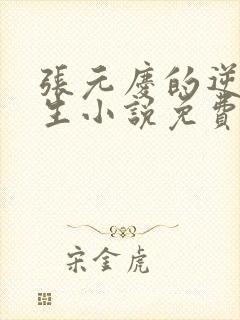 張元慶的逆
生小說免費
宋金虎